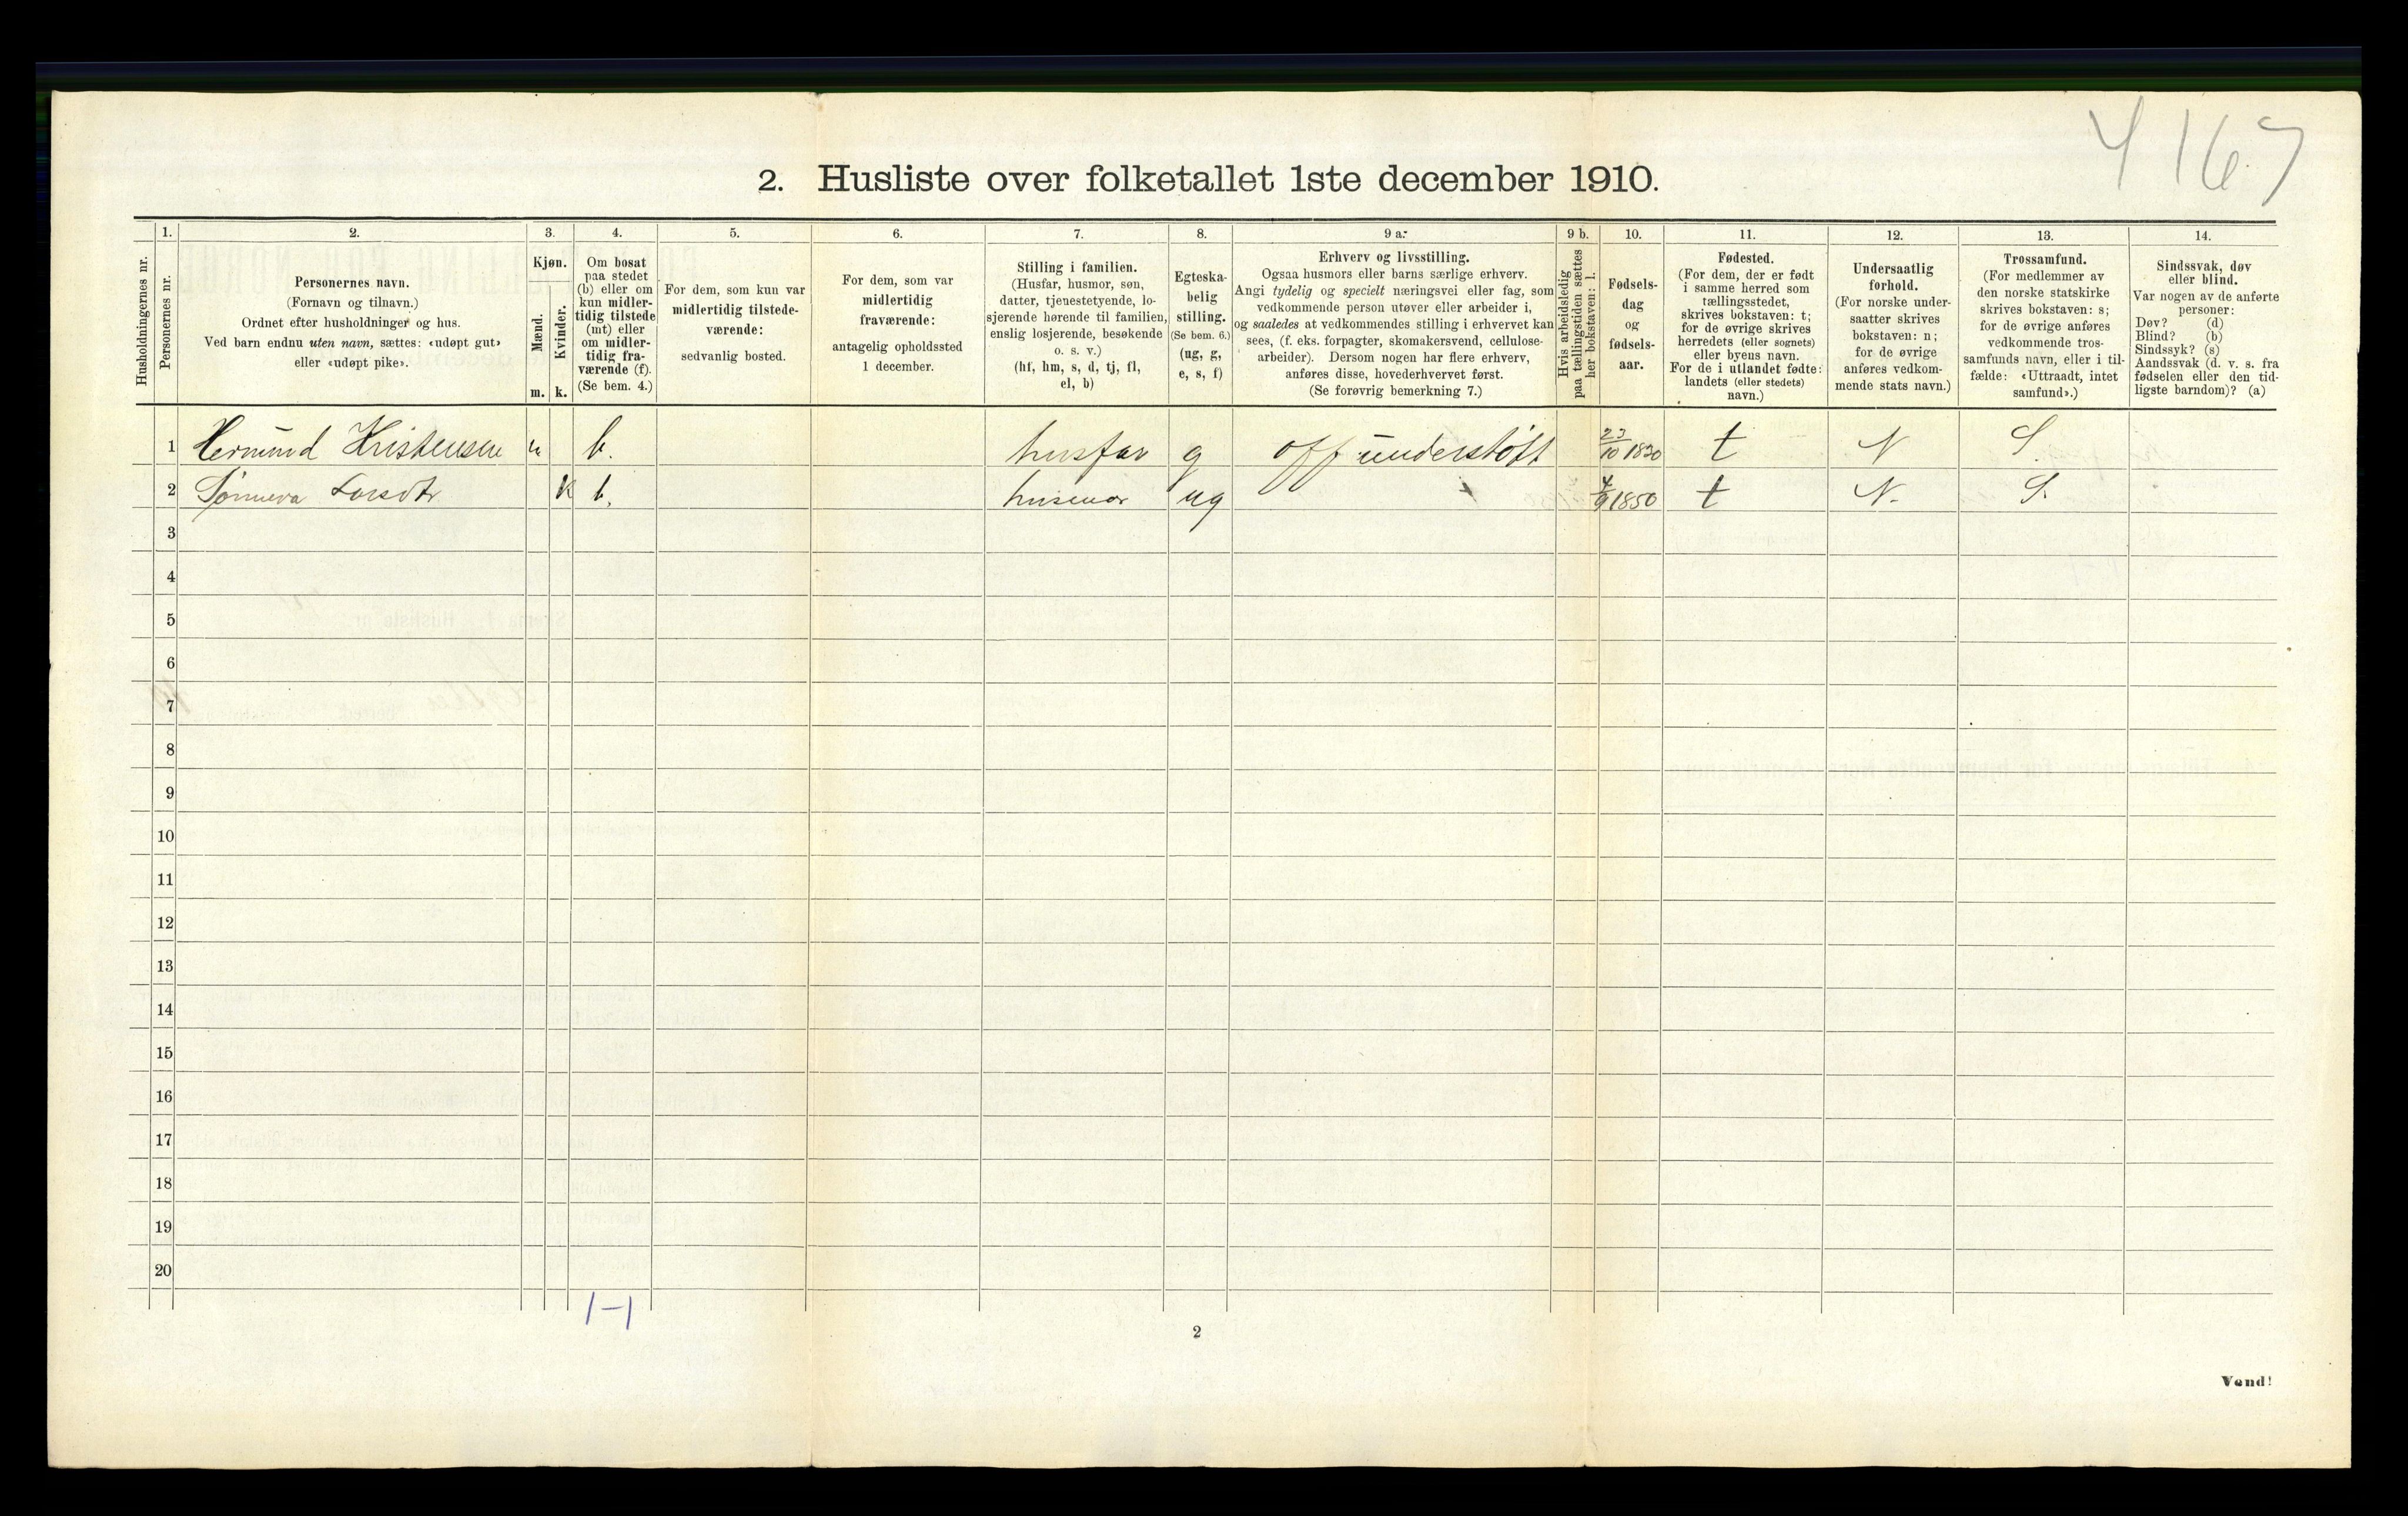 4167
2. Husliste over folketallet 1ste december 1910.
Husholdningernes nr.
1.
Personernes nr.
2.
Personernes navn.
(Fornavn og tilnavn.)
Ordnet efter husholdninger og hus.
Ved barn endnu uten navn, sættes: «udøpt gut»
eller «udøpt pike».
3.
Kjøn.
Mænd.
Kvinder.
m. k.
4.
Om bosat
paa stedet
(b) eller om
kun midler-
tidig tilstede
(mt) eller
om midler-
tidig fra-
værende (f).
(Se bem. 4.)
5.
For dem, som kun var
midlertidig tilstede-
værende:
sedvanlig bosted.
6.
For dem, som var
midlertidig
fraværende:
antagelig opholdssted
1 december.
7.
Stilling i familien.
(Husfar, husmor, søn,
datter, tjenestetyende, lo-
sjerende hørende til familien,
enslig losjerende, besøkende
o. s. v.)
(hf, hm, s, d, tj, fl,
el, b)
8.
Egteska-
belig
stilling.
(Se bem. 6.)
(ug, g,
e, s, f)
9 a.
Erhverv og livsstilling.
Ogsaa husmors eller barns særlige erhverv.
Angi tydelig og specielt næringsvei eller fag, som
vedkommende person utøver eller arbeider i,
og saaledes at vedkommendes stilling i erhvervet kan
sees, (f. eks. forpagter, skomakersvend, cellulose-
arbeider). Dersom nogen har flere erhverv,
anføres disse, hovederhvervet først.
(Se forøvrig bemerkning 7.)
9 b.
Hvis arbeidsledig
paa tællingstiden sættes
her bokstaven: l.
10.
Fødsels-
dag
og
fødsels-
aar.
11.
Fødested.
(For dem, der er født
i samme herred som
tællingsstedet,
skrives bokstaven: t;
for de øvrige skrives
herredets (eller sognets)
eller byens navn.
For de i utlandet fødte:
landets (eller stedets)
navn.)
12.
Undersaatlig
forhold.
(For norske under-
saatter skrives
bokstaven: n;
for de øvrige
anføres vedkom-
mende stats navn.)
13.
Trossamfund.
(For medlemmer av
den norske statskirke
skrives bokstaven: s;
for de øvrige anføres
vedkommende tros-
samfunds navn, eller i til-
fælde: «Uttraadt, intet
samfund».)
14.
Sindssvak, døv
eller blind.
Var nogen av de anførte
personer:
Døv? (d)
Blind? (b)
Sindssyk? (s)
Aandssvak (d. v. s. fra
fødselen eller den tid-
ligste barndom)? (a)
1 Hermund Kristensen m b. husfar g off understøtt 23/10 1830 t N S.
2 Sønneva Larsdtr k b. husmor ug 4/9 1850 t N. S.
3
4
5
6
7
8
9
10
11
12
13
14
15
16
17
18
19
20
1-1
2
Vend!